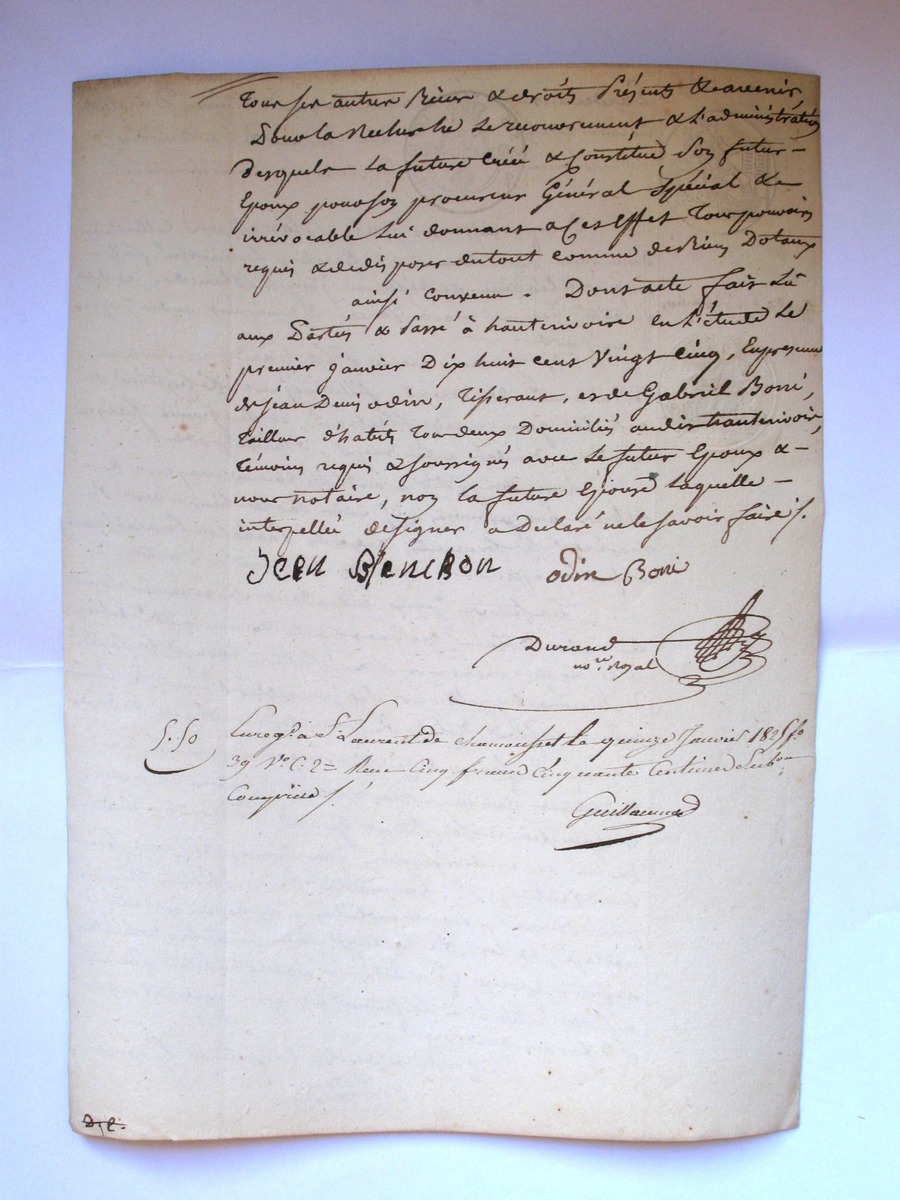 tous ses autres biens & droits présents & avenir,
Pour la Recherche Le recouvrement & L'administration
desquels La future Créé & Constitue Son futur
Epoux pour son procureur Général Spécial &
irrévocable Lui donnant a Cet Effet Tour pouvoirs
requis & de disposer du tout comme de Biens Dotaux
ainsi convenu. Dont acte fait Lu
aux Parties & Passé à hauterivoire en L'étude Le
premier janvier Dix huit cent Vingt Cinq, En presence
de Jean Denis odin, Tisserant, et de Gabriel Borié,
Tailleur d'habits Tous deux Domiciliés audit hauterivoire,
Témoins requis & soussignés avec Le futur Epoux &
nous notaire, non la future Epouse Laquelle
interpellée de signer a Déclaré ne le savoir faire /.
Jean Blanchon odin Borié
Durand
no.re Royal
5.50 Enregé. à St. Laurent de chamousset le quinze Janvier 1825 fo.
39 Vo. C. 2 = Recu Cinq francs Cinquante Centimes
Comprise /.
Guillaumed